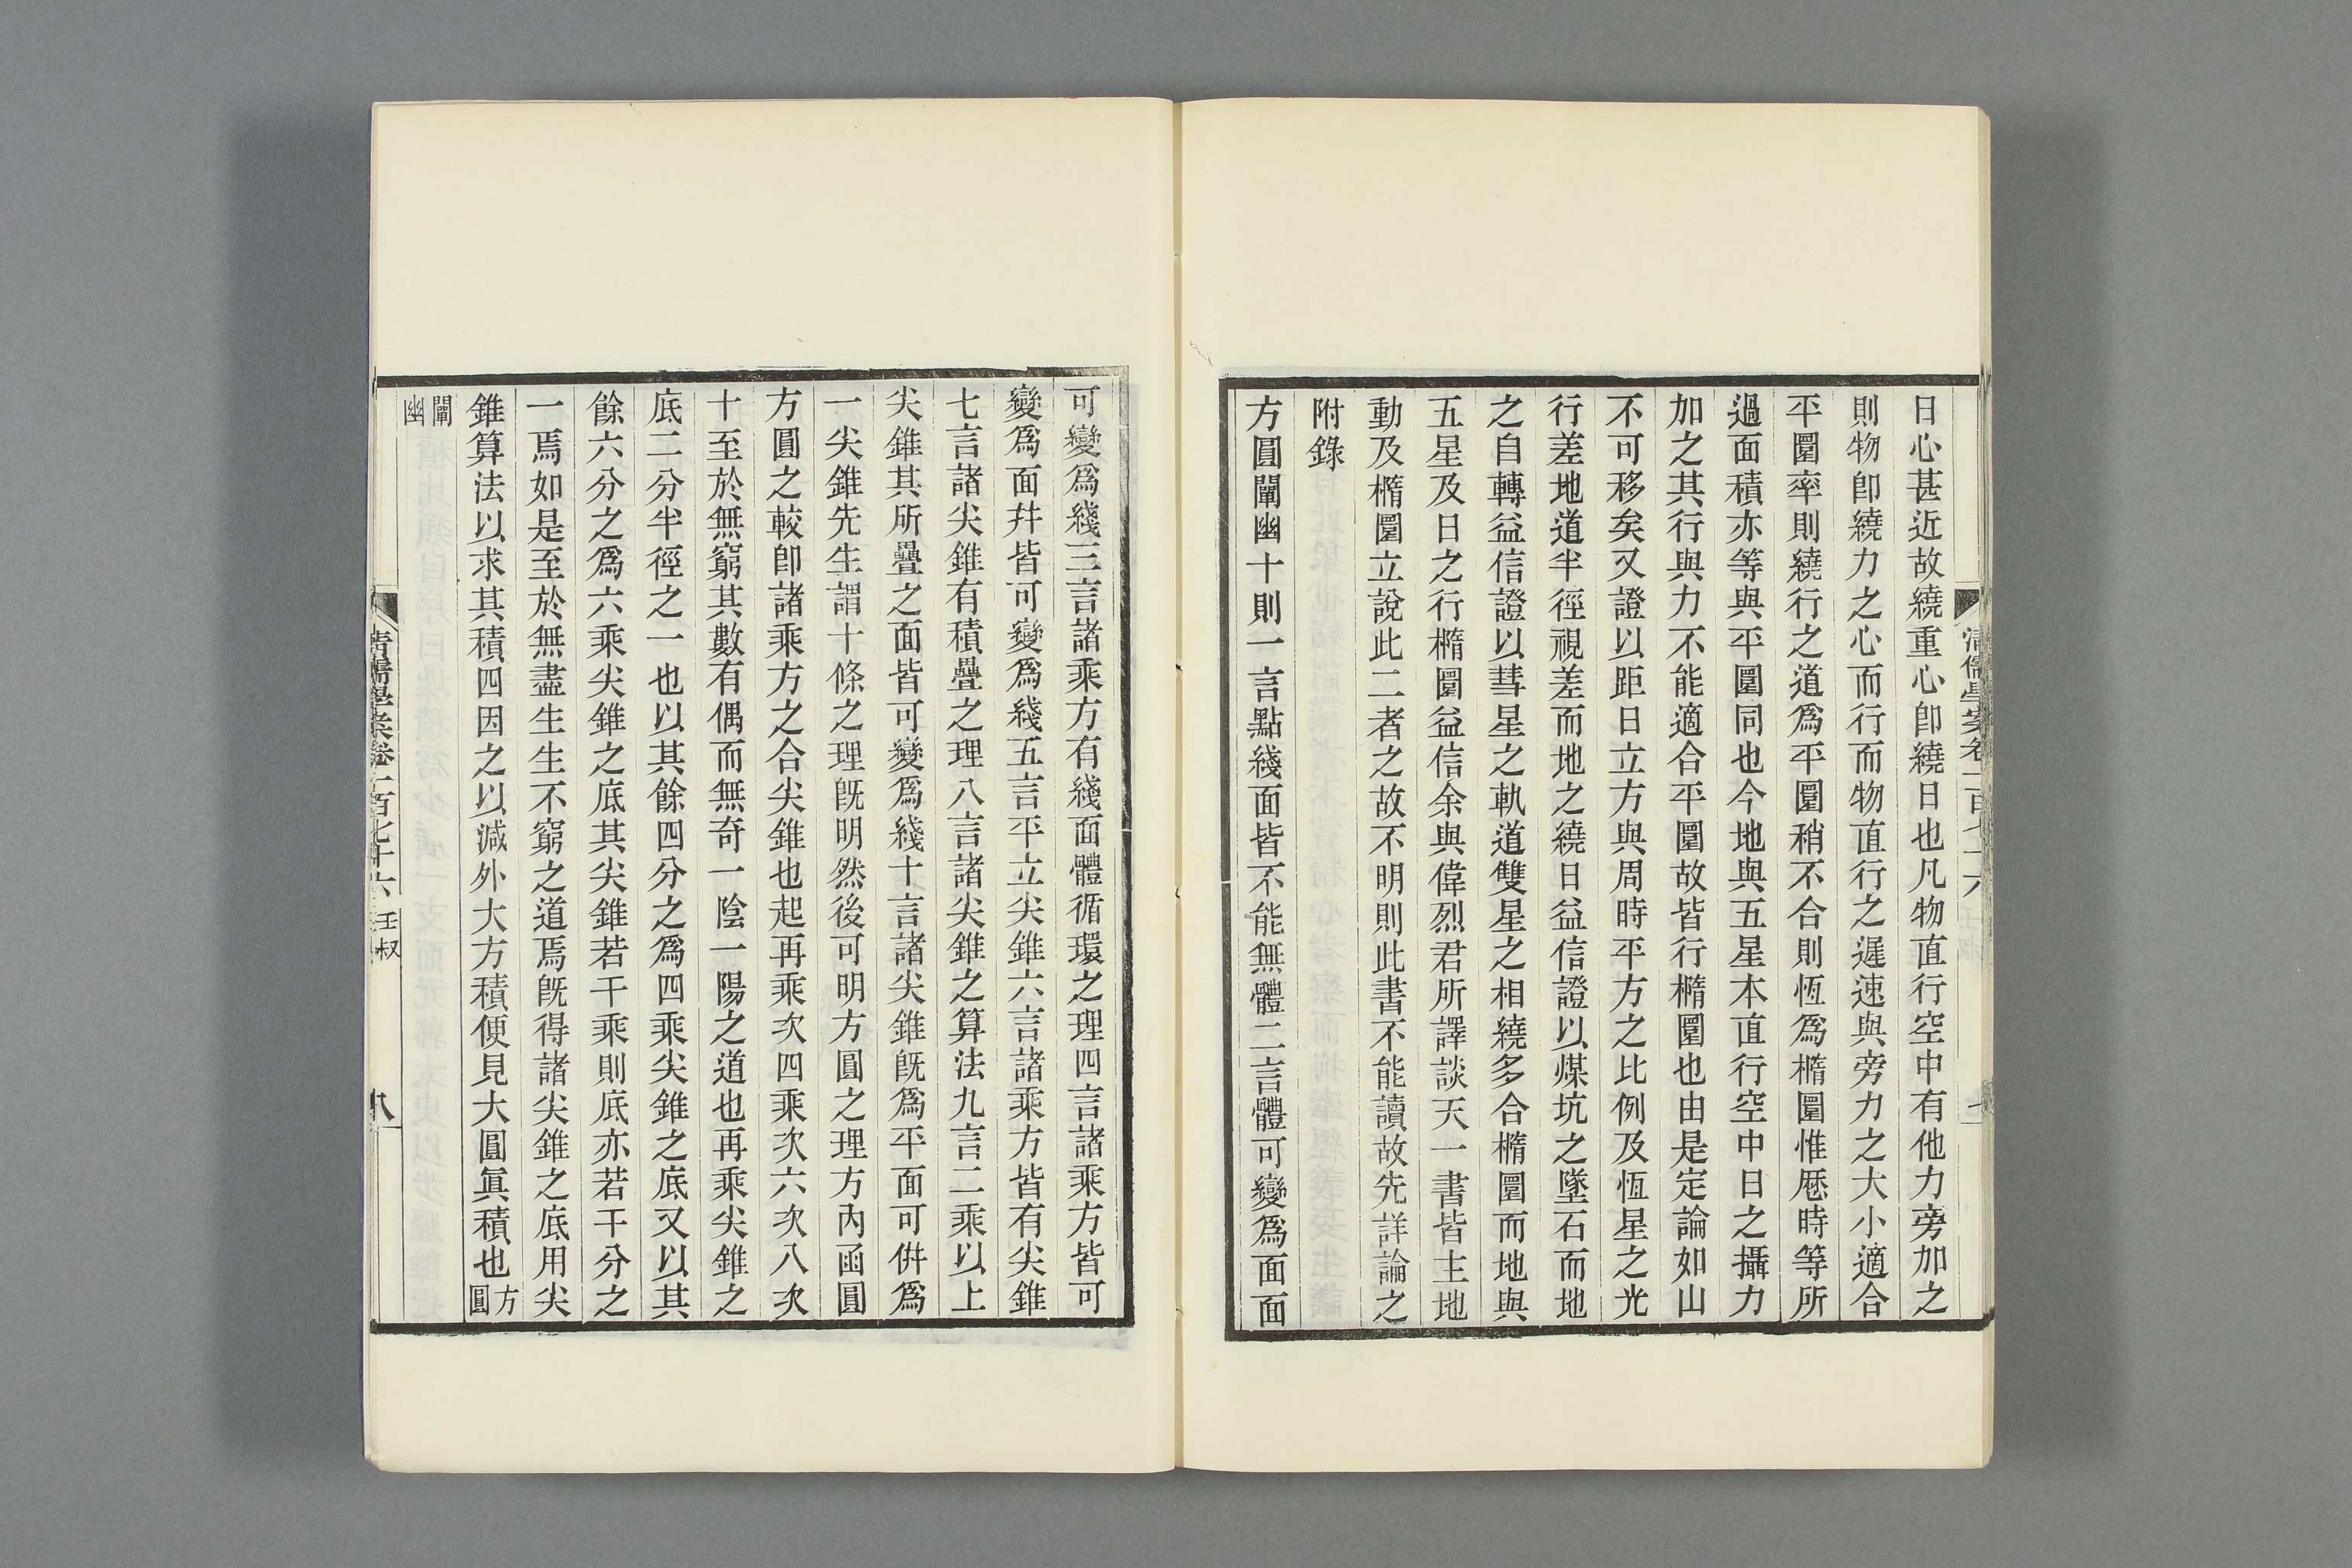 日心甚近故繞重心卽繞日也凡物直行空中有他力旁加之
則物卽繞力之心而行而物直行之遲速與旁力之大小適合
平圜率則繞行之道爲平圜稍不合則恆爲橢圜惟厯時等所
過面積亦等與平圜同也今地與五星本直行空中日之攝力
加之其行與力不能適合平圜故皆行橢圜也由是定論如山
不可移矣又證以距日立方與周時平方之比例及恆星之光
行差地道半徑視差而地之繞日益信證以煤坑之墜石而地
之自轉益信證以彗星之軌道雙星之相繞多合橢圜而地與
五星及日之行橢圜益信余與偉烈君所譯談天一書皆主地
動及橢圜立說此二者之故不明則此書不能讀故先詳論之
附錄
方圓闡幽十則一言點綫面皆不能無體二言體可變爲面面
可變爲綫三言諸乘方有綫面體循環之理四言諸乘方皆可
變爲面幷皆可變爲綫五言平立尖錐六言諸乘方皆有尖錐
七言諸尖錐有積疊之理八言諸尖錐之算法九言二乘以上
尖錐其所疊之面皆可變爲綫十言諸尖錐旣爲平面可併爲
一尖錐先生謂十條之理旣明然後可明方圓之理方內函圓
方圓之較卽諸乘方之合尖錐也起再乘次四乘次六次八次
十至於無窮其數有偶而無奇一陰一陽之道也再乘尖錐之
底二分半徑之一也以其餘四分之爲四乘尖錐之底又以其
餘六分之爲六乘尖錐之底其尖錐若干乘則底亦若干分之
一焉如是至於無盡生生不窮之道焉旣得諸尖錐之底用尖
錐算法以求其積四因之以減外大方積便見大圓眞積也方圓
闡幽
清儒學案卷一百七十六 壬叔
八